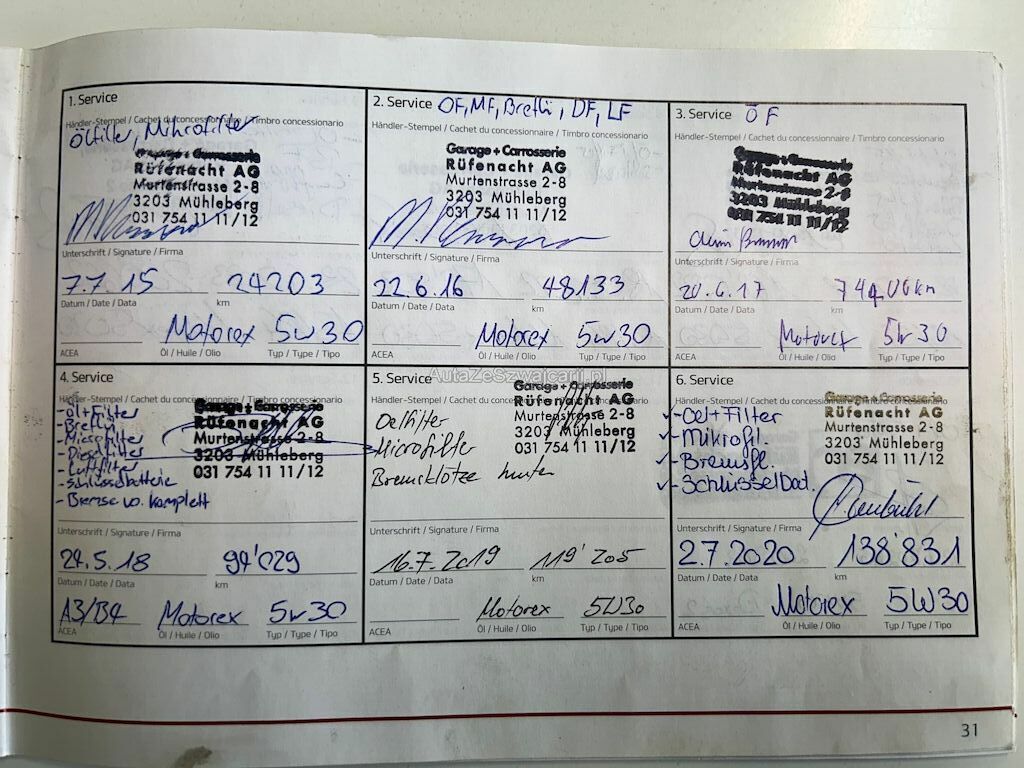 1. Service
Händler-Stempel / Cachet du concessionnaire / Timbro concessionario
Ölfilter, Mikrofilter
Garage + Carrosserie
Rüfenacht AG
Murtenstrasse 2-8
3203 Mühleberg
031 754 11 11/12
Unterschrift / Signature / Firma
7.7.15 24203
Datum / Date / Data km
Motorex 5W30
ACEA Öl / Huile / Olio Typ / Type / Tipo
2. Service ÖF, MF, Breflü, DF, LF
Händler-Stempel / Cachet du concessionnaire / Timbro concessionario
Garage + Carrosserie
Rüfenacht AG
Murtenstrasse 2-8
3203 Mühleberg
031 754 11 11/12
Unterschrift / Signature / Firma
22.6.16 48133
Datum / Date / Data km
Motorex 5W30
ACEA Öl / Huile / Olio Typ / Type / Tipo
3. Service ÖF
Händler-Stempel / Cachet du concessionnaire / Timbro concessionario
Garage + Carrosserie
Rüfenacht AG
Murtenstrasse 2-8
3203 Mühleberg
031 754 11 11/12
Unterschrift / Signature / Firma
20.6.17
Datum / Date / Data km
Motorex 5W30
ACEA Öl / Huile / Olio Typ / Type / Tipo
AutaZeSzwajcarii.pl
4. Service
Händler-Stempel / Cachet du concessionnaire / Timbro concessionario
- Öl+Filter
- Breflü
- Microfilter
- Dieselfilter
- Luftfilter
- Schlüsselbatterie
- Bremse vo. komplett
Garage + Carrosserie
Rüfenacht AG
Murtenstrasse 2-8
3203 Mühleberg
031 754 11 11/12
Unterschrift / Signature / Firma
24.5.18 94'029
Datum / Date / Data km
A3/B4 Motorex 5W30
ACEA Öl / Huile / Olio Typ / Type / Tipo
5. Service
Händler-Stempel / Cachet du concessionnaire / Timbro concessionario
Oelfilter
Microfilter
Bremsklötze hinten
Garage + Carrosserie
Rüfenacht AG
Murtenstrasse 2-8
3203 Mühleberg
031 754 11 11/12
Unterschrift / Signature / Firma
16.7.2019 119'205
Datum / Date / Data km
Motorex 5W30
ACEA Öl / Huile / Olio Typ / Type / Tipo
6. Service
Händler-Stempel / Cachet du concessionnaire / Timbro concessionario
✓ - Oel+Filter
✓ - Mikrofil.
✓ - Bremsfl.
✓ - Schlüsselbat.
Garage + Carrosserie
Rüfenacht AG
Murtenstrasse 2-8
3203 Mühleberg
031 754 11 11/12
Unterschrift / Signature / Firma
2.7.2020 138'831
Datum / Date / Data km
Motorex 5W30
ACEA Öl / Huile / Olio Typ / Type / Tipo
31